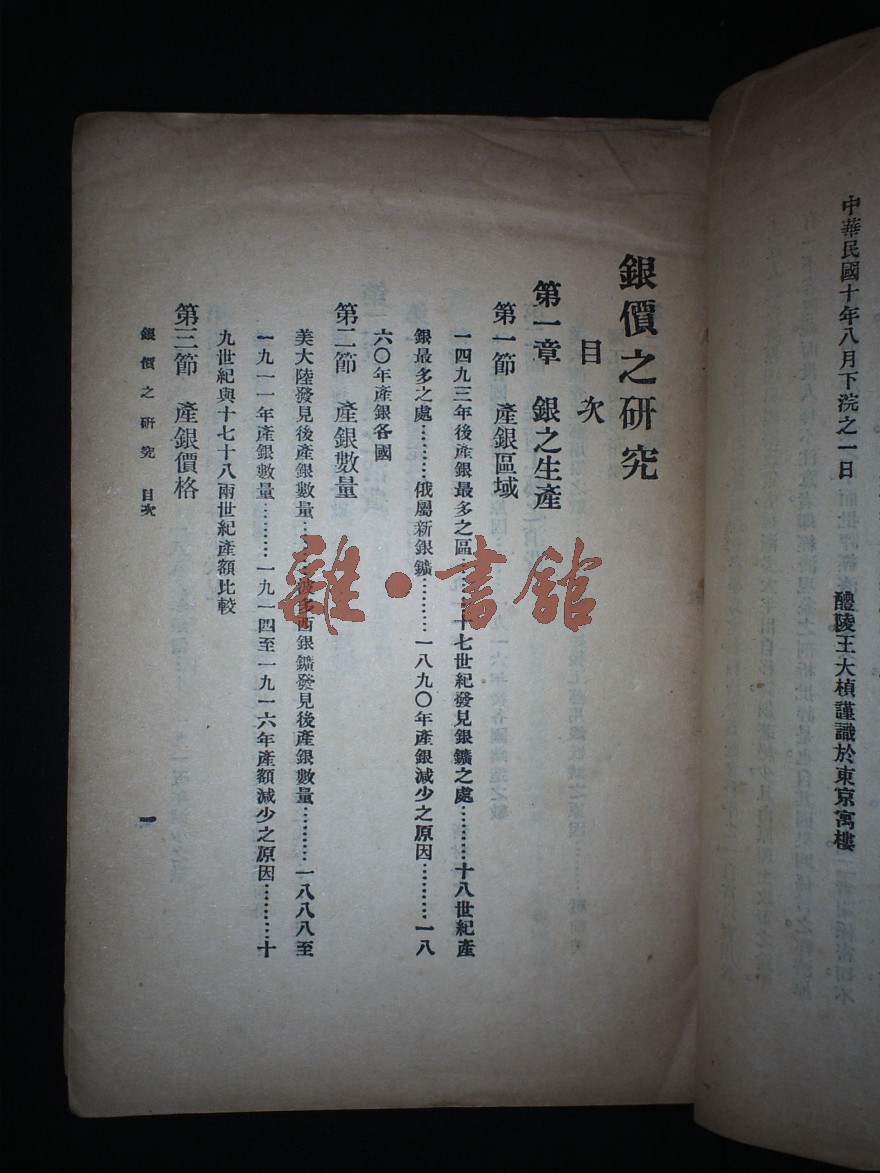 中華民國十年八月下浣之一日
醴陵王大楨謹識於東京寓樓
銀價之研究
目次
第一章 銀之生產
第一節 產銀區域
一四九三年後產銀最多之區………十七世紀發見銀鑛之處………十八世紀產
銀最多之處………俄屬新銀鑛………一八九〇年產銀減少之原因………一八
六〇年產銀各國
第二節 產銀數量
美大陸發見後產銀數量………波多西銀鑛發見後產銀數量………一八八八至
一九一一年產銀數量………一九一四至一九一六年產額減少之原因………十
九世紀與十七十八兩世紀產額比較
第三節 產銀價格
銀價之研究 目次
一
雜·書館